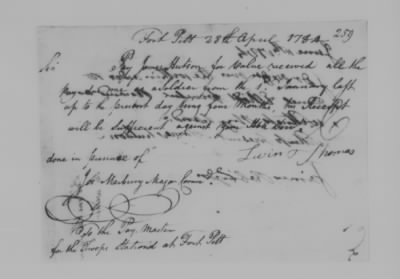 Fort Pitt 28th April 1784 259
Sir Pay James Hutson for Value received all the
pay due me as a soldier from the 1st January last
up to the present day being four Months, his Receipt
will be sufficient against Your Hble Serv
done in presence of Thomas
Jos Marbury Major Comm
To the Pay Master
for the Troops stationd at Fort Pitt